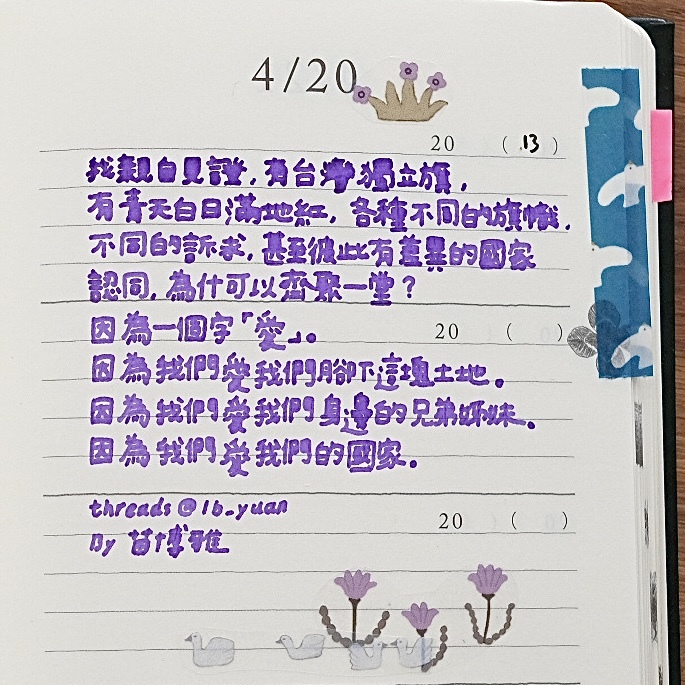 4/20
20 （ 13 ）
我親自見證，有台灣獨立旗，
有青天白日滿地紅，各種不同的旗幟，
不同的訴求，甚至彼此有差異的國家
認同，為什可以齊聚一堂？
20 （ ）
因為一個字「愛」。
因為我們愛我們腳下這塊土地。
因為我們愛我們身邊的兄弟姊妹。
因為我們愛我們的國家。
threads@lb_yuan
20 （ ）
By 苗博雅